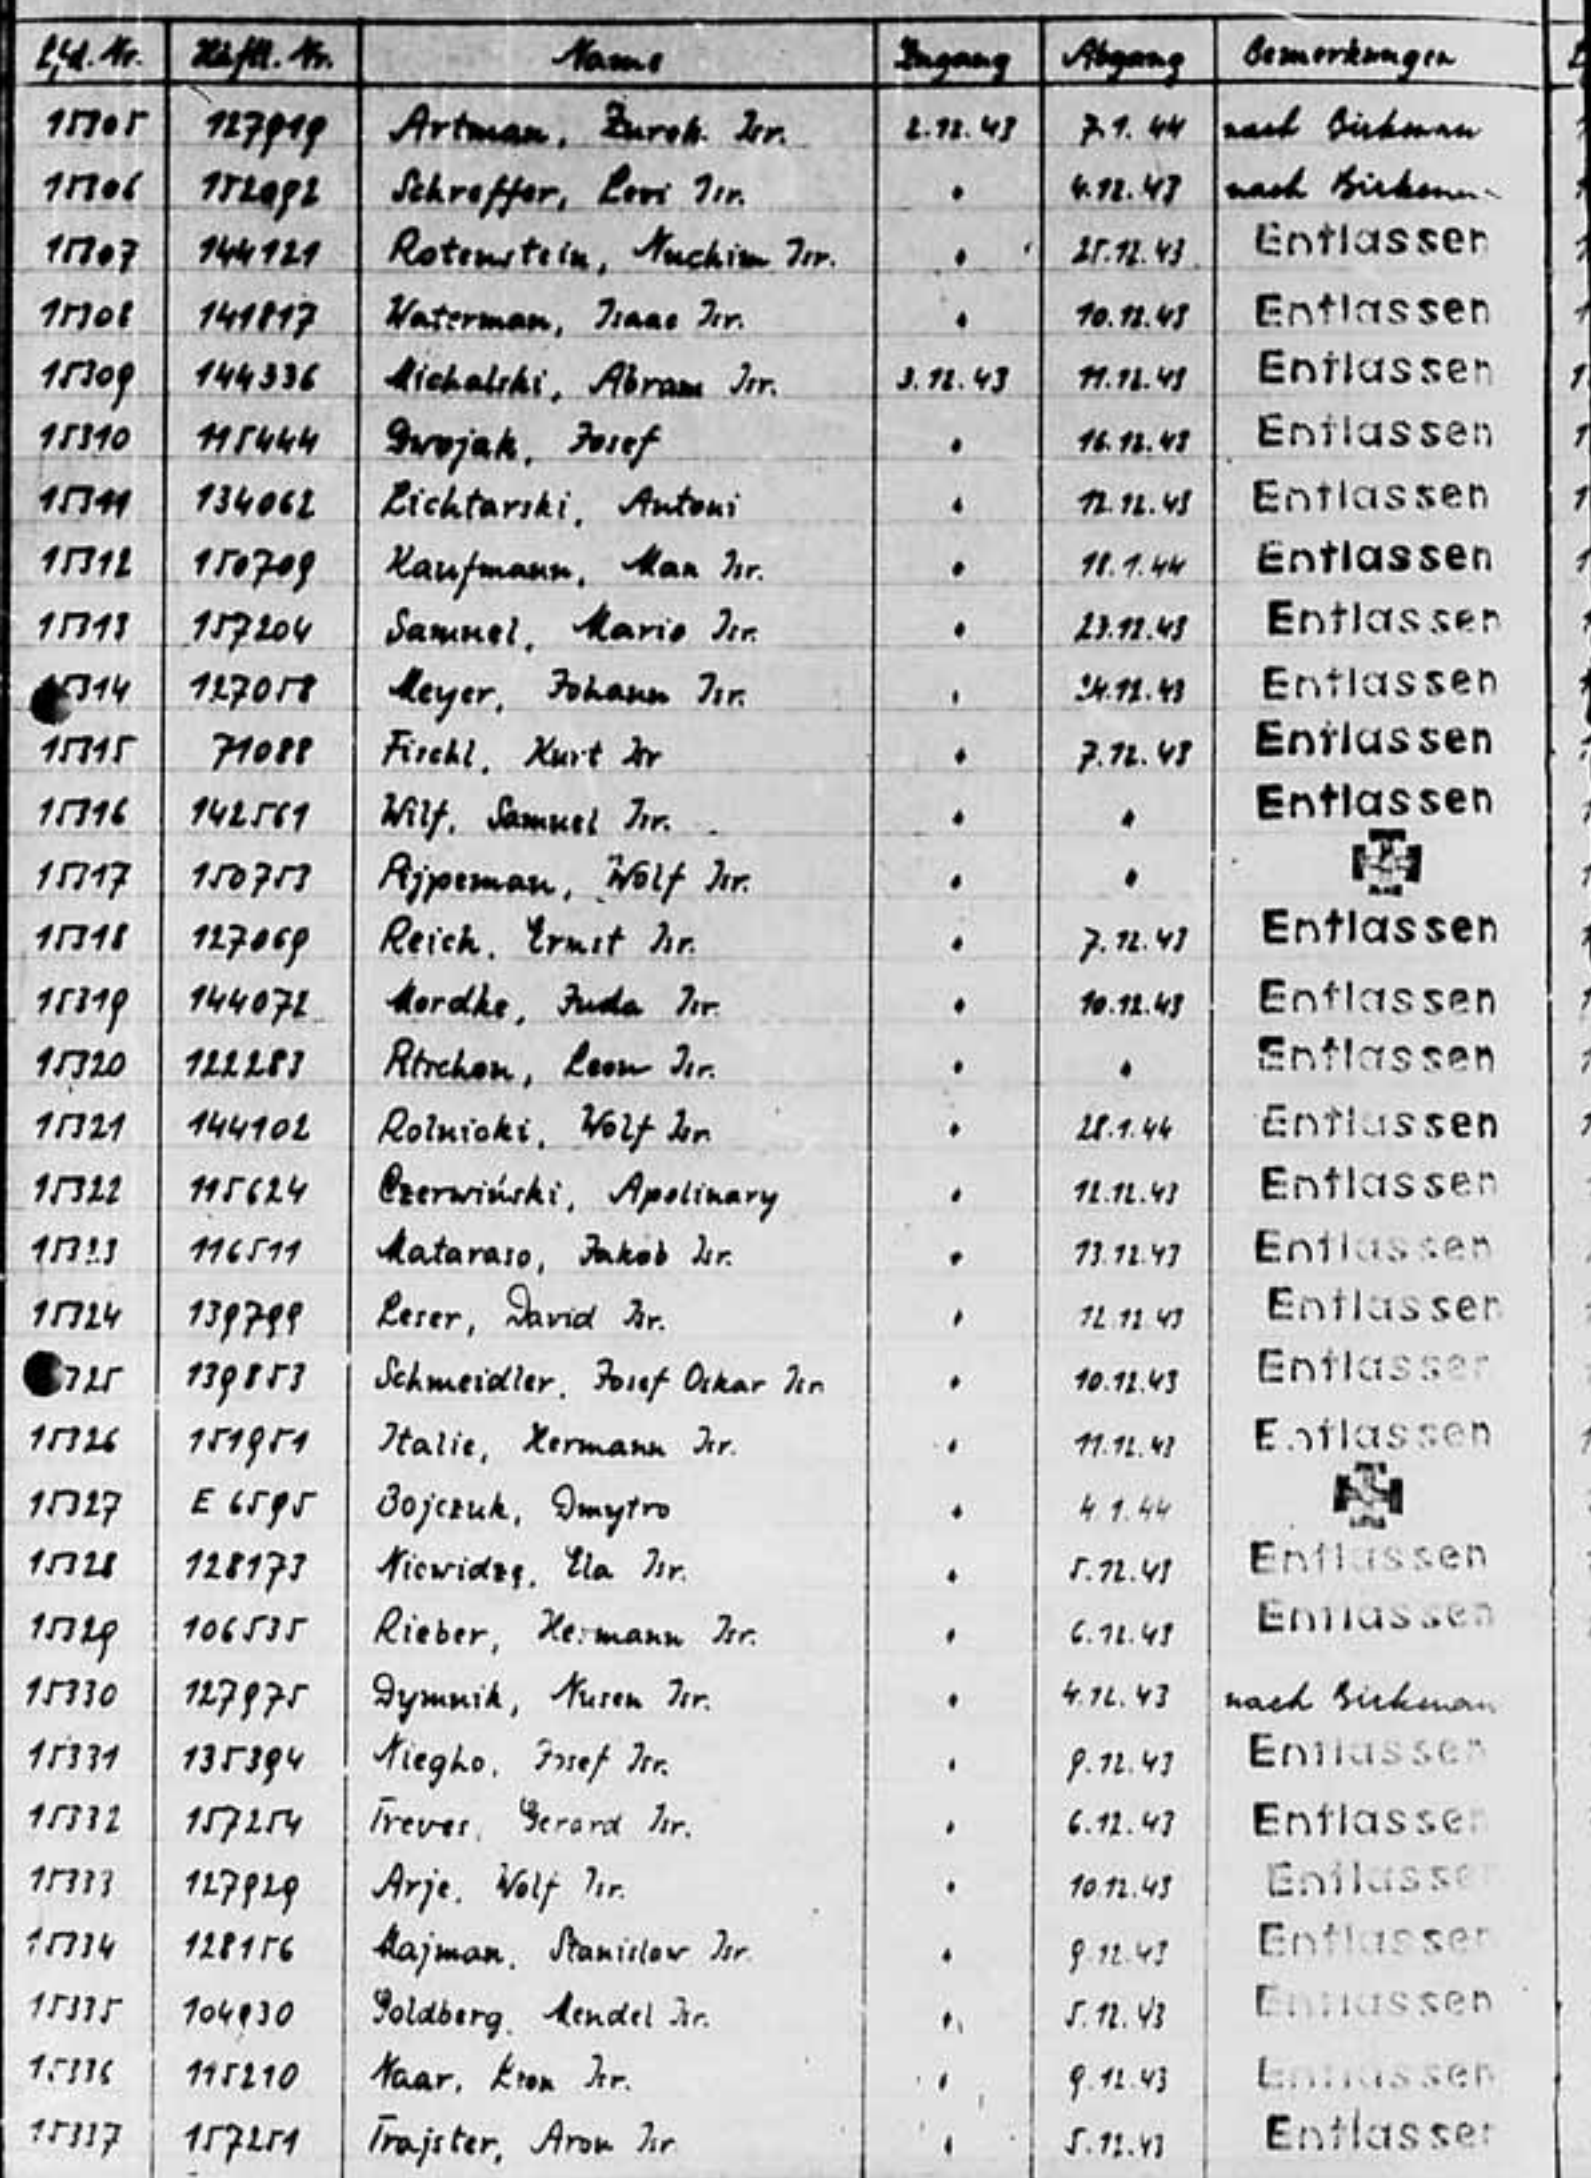 Lfd. Nr. Häftl. Nr. Name Zugang Abgang Bemerkungen
15305 127919 Artman, Zurek Isr. 2.12.43 7.1.44 nach Birkenau
15306 152092 Schreffer, Levi Isr. " 4.12.43 nach Birkenau
15307 144121 Rotenstein, Nuchim Isr. " 25.12.43 Entlassen
15308 141817 Waterman, Isaac Isr. " 10.12.43 Entlassen
15309 144336 Michalski, Abram Isr. 3.12.43 11.12.43 Entlassen
15310 115444 Dwojak, Josef " 16.12.43 Entlassen
15311 134062 Lichtarski, Antoni " 12.12.43 Entlassen
15312 150709 Kaufmann, Max Isr. " 18.1.44 Entlassen
15313 157204 Samuel, Mario Isr. " 23.12.43 Entlassen
15314 127058 Meyer, Johann Isr. " 24.12.43 Entlassen
15315 71088 Fischl, Kurt Isr " 7.12.43 Entlassen
15316 142561 Wilf, Samuel Isr. " " Entlassen
15317 150753 Wolf Isr. " "
15318 127069 Reich, Ernst Isr. " 7.12.43 Entlassen
15319 144072 Mordke, Juda Isr. " 10.12.43 Entlassen
15320 122283 Leon Isr. " " Entlassen
15321 144102 Rolnicki, Wolf Isr. " 28.1.44 Entlassen
15322 115624 Czerwiński, Apolinary " 12.12.43 Entlassen
15323 116511 Mataraso, Jakob Isr. " 13.12.43 Entlassen
15324 139799 Leser, David Isr. " 12.12.43 Entlassen
325 139853 Schmeidler, Josef Oskar Isr. " 10.12.43 Entlassen
15326 151951 Italie, Hermann Isr. " 11.12.43 Entlassen
15327 E 6595 Bojczuk, Dmytro " 4.1.44
15328 128173 Niewidzę, Ela Isr. " 5.12.43 Entlassen
15329 106535 Rieber, Hermann Isr. " 6.12.43 Entlassen
15330 127975 Dymnik, Nusen Isr. " 4.12.43 nach Birkenau
15331 135394 Niegho, Josef Isr. " 9.12.43 Entlassen
15332 157254 Treves, Gerard Isr. " 6.12.43 Entlassen
15333 127929 Arje, Wolf Isr. " 10.12.43 Entlassen
15334 128156 Majman, Stanislaw Isr. " 9.12.43 Entlassen
15335 104930 Goldberg, Mendel Isr. " 5.12.43 Entlassen
15336 115210 Naar, Isr. " 9.12.43 Entlassen
15337 157251 Trajster, Aron Isr " 5.12.43 Entlassen